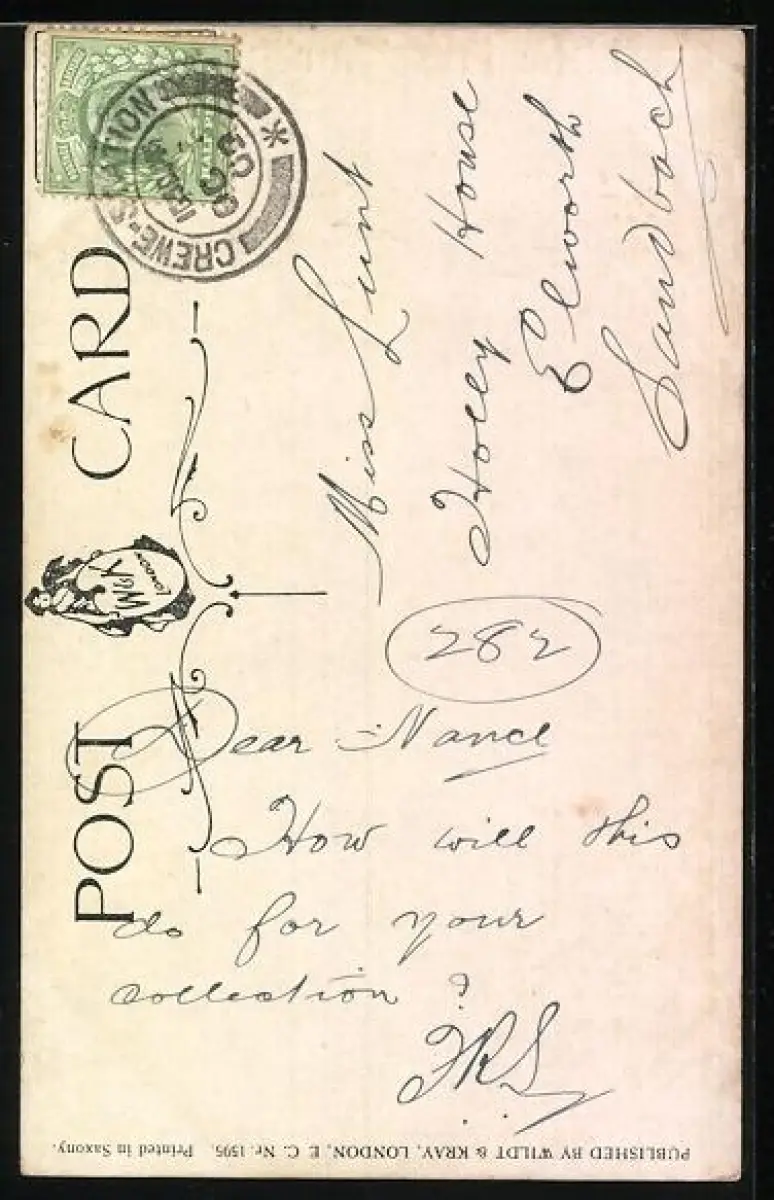 POST CARD
W&K
LONDON
CREWE-STATION
OC
Miss Lunt
Holly House
Elworth
Sandbach
282
Dear Nance
How will this
do for your
collection?
FRS
PUBLISHED BY WILDT & KRAY, LONDON, E. C. Nr. 1595. Printed in Saxony.